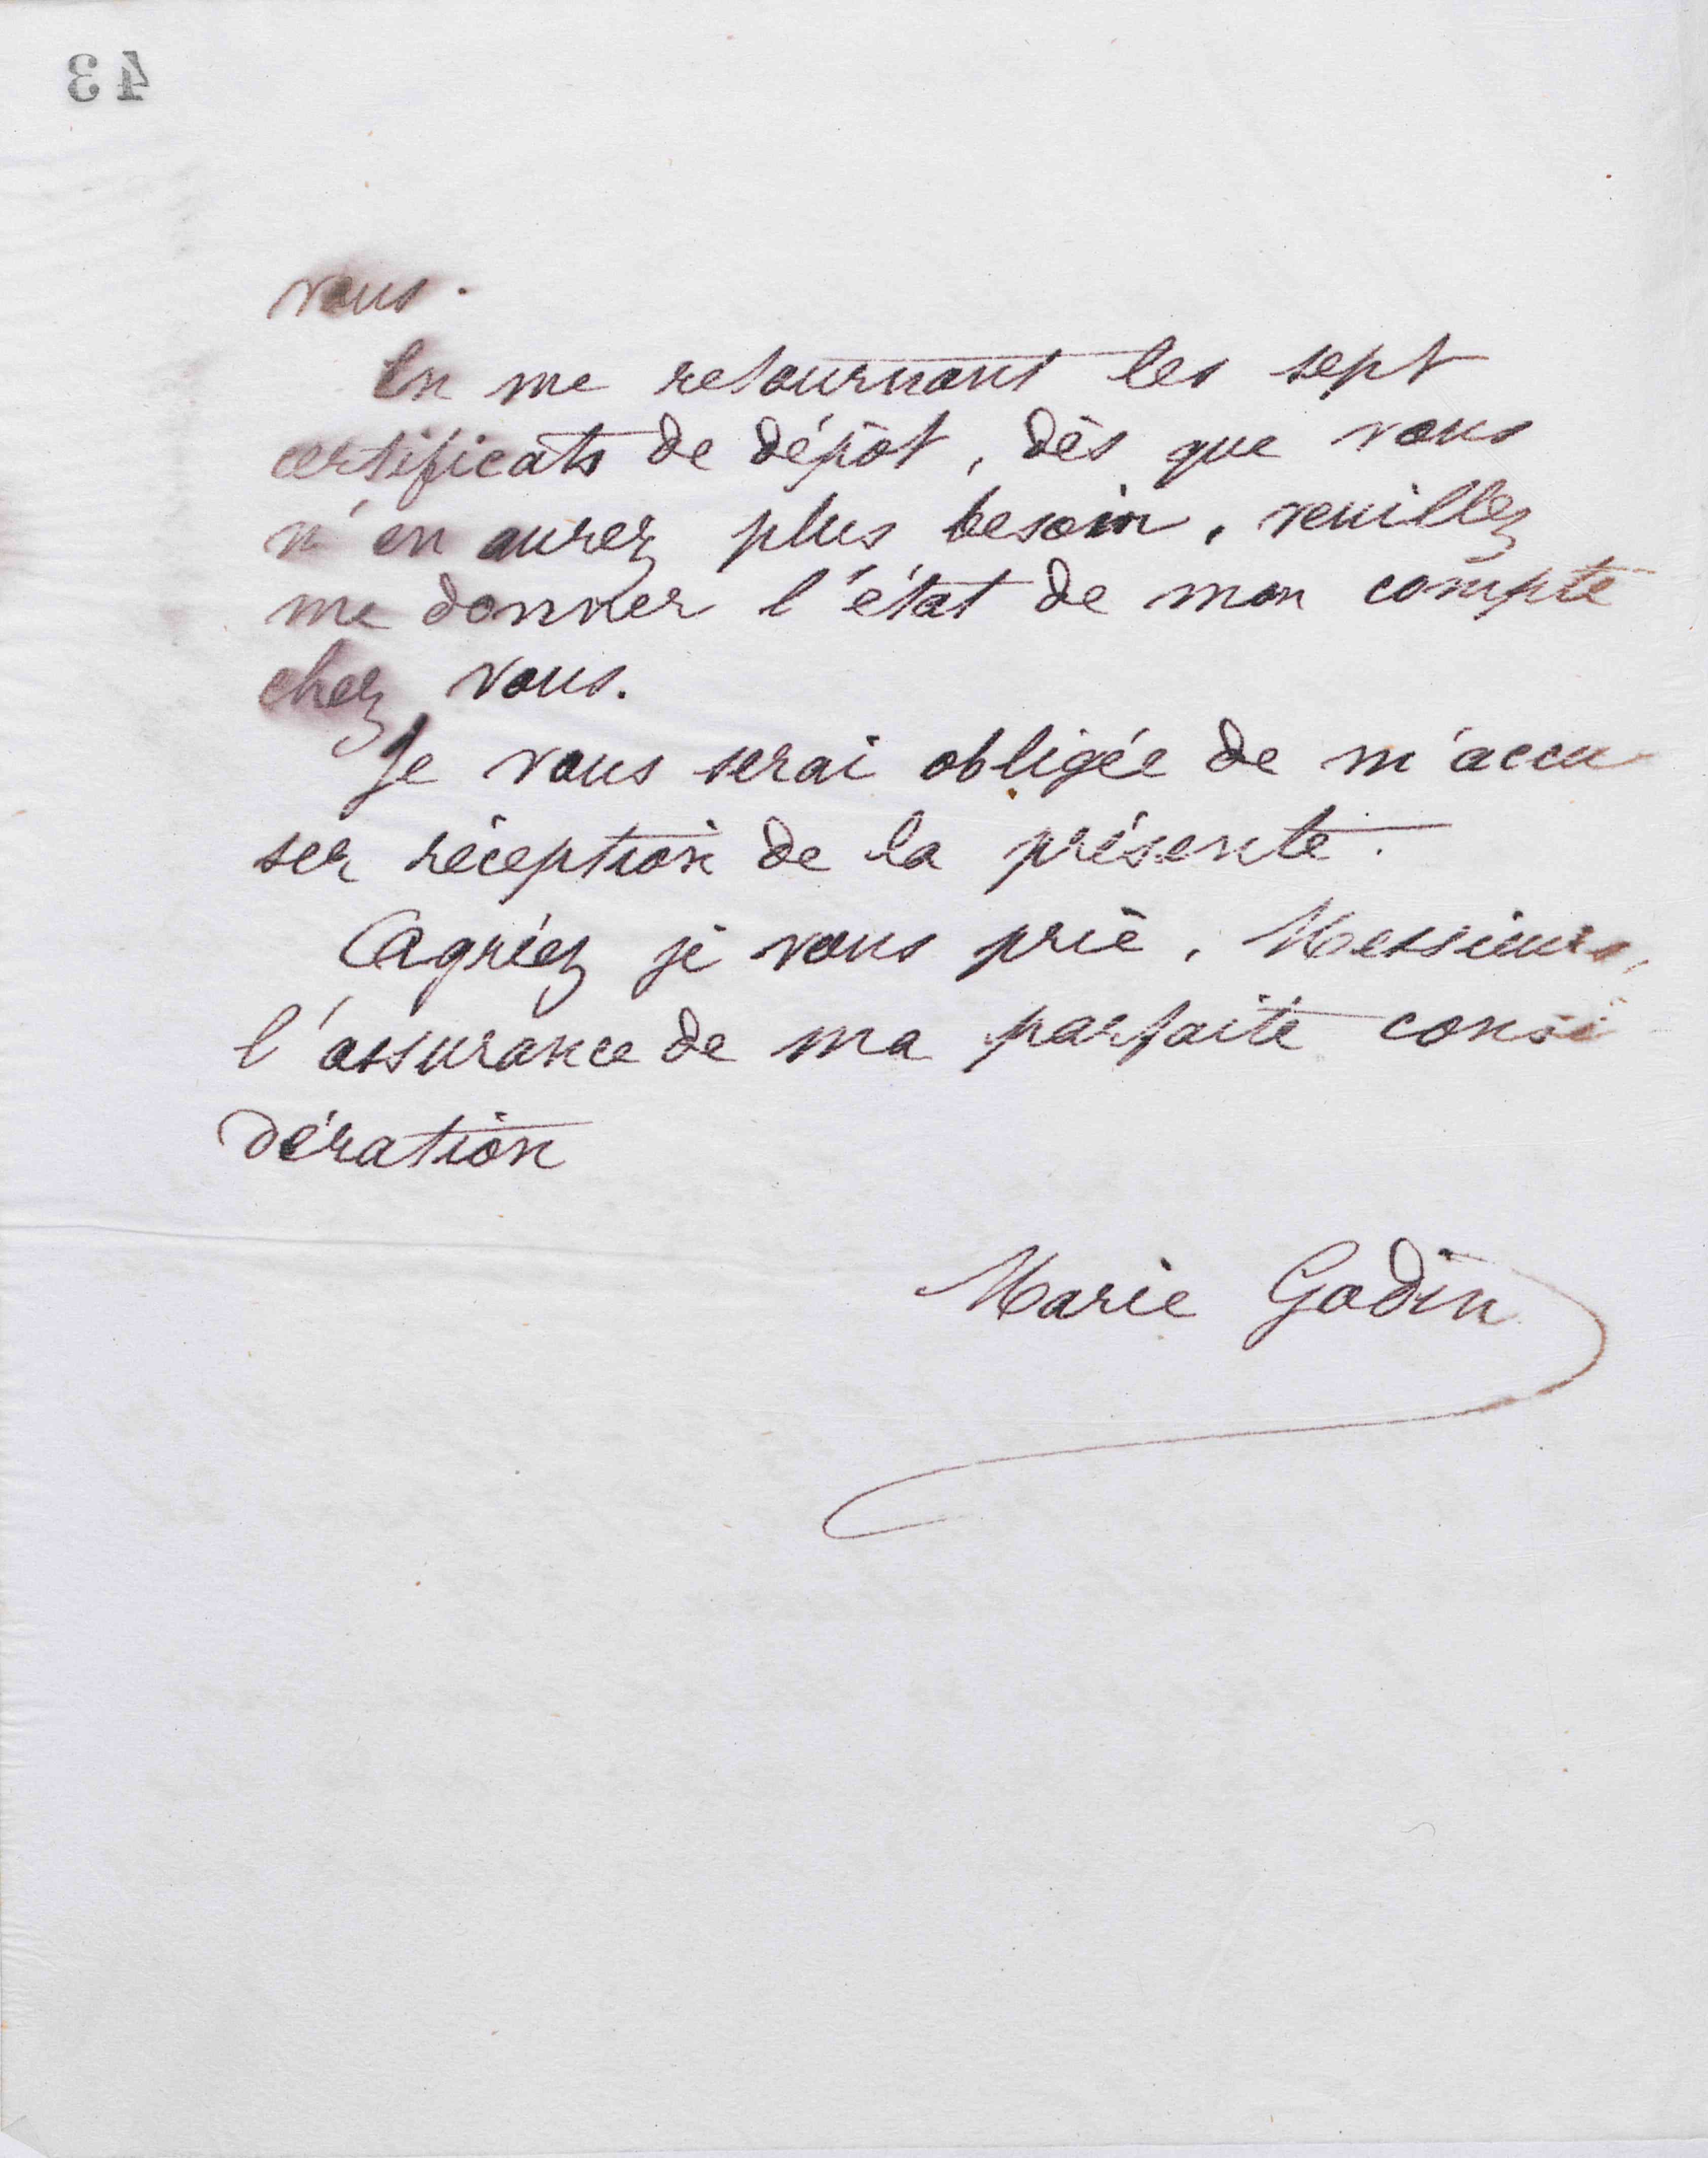 43
vous.
En me retournant les sept
certificats de dépôt, dès que vous
n'en aurez plus besoin, veuillez
me donner l'état de mon compte
chez vous.
Je vous serai obligée de m'accu
ser réception de la présente.
Agréez je vous prie, Messieurs,
l'assurance de ma parfaite consi
dération
Marie Godin